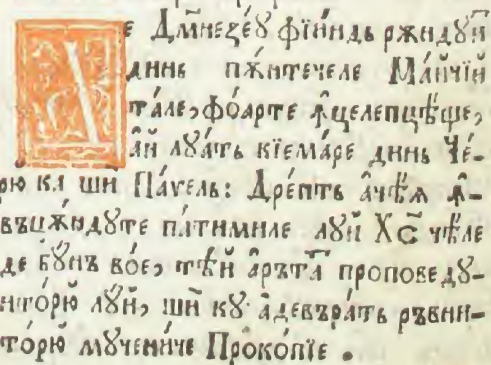 Де Дм҃неꙁеꙋ́ фїи́ндь рѫндꙋи́
динь пѫ́нтечеле Ма́йчїй
та́ле, фо́арте ꙟ҆целепцѣ́ше,
а҆́й лꙋа́ть кїема́ре динь Че́-
рю ка ши Па́ѵель: Дре́пть а҆чѣ́ѧ ꙟ҆-
въцѫндꙋте па́тимиле лꙋ́й Хс҃ чѣ́ле
де бꙋ́нъ во́е, тѣ́й а҆рътⷶ проповедꙋ-
ито́рю лꙋ́й, ши́ кꙋ а҆девъра́ть ръвни-
то́рю мꙋ́чениче Проко́пїе .